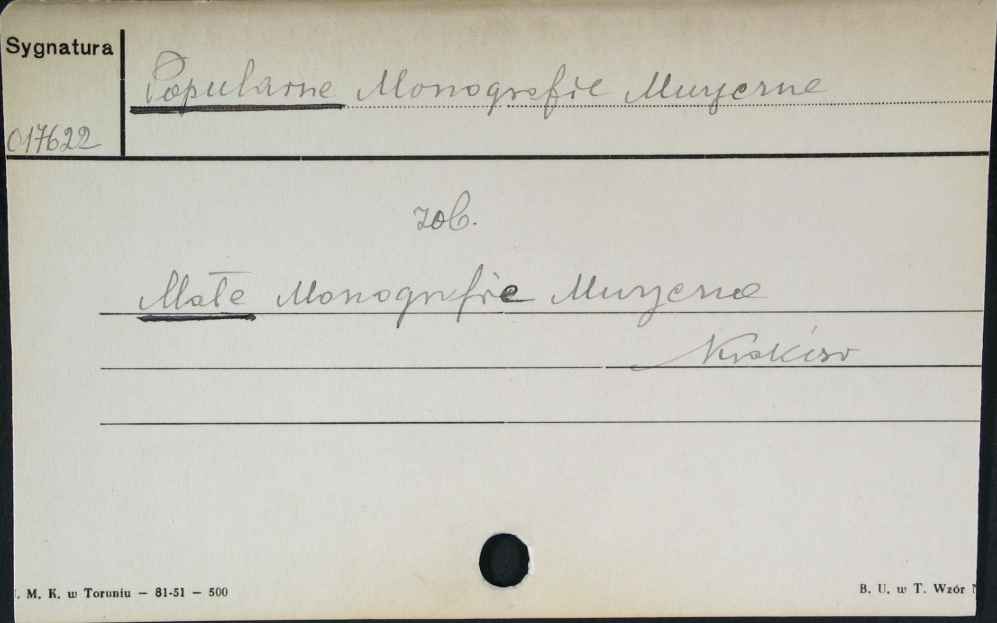 Sygnatura
Popularne Monografie Muzyczne
017622
zob.
Małe Monografie Muzyczne
Kraków
. M. K. w Toruniu — 81-51 — 500
B. U. w T. Wzór